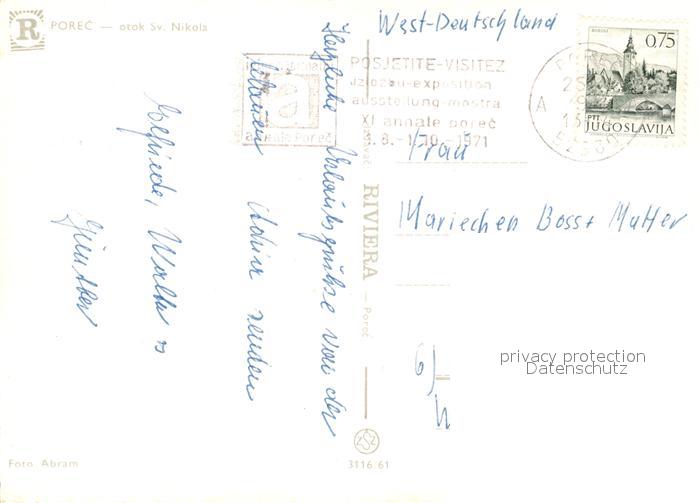 R
POREČ — otok Sv. Nikola
West-Deutschland
0,75
PTT
JUGOSLAVIJA
POSJETITE-VISITEZ
izložbu-exposition
ausstellung-mostra
XI annale poreč
8.-1.10.-1971
annale Poreč
A
52350
Frau
Mariechen Boss + Mutter
Herzliche Urlaubsgrüße von der
schönen Adria senden
Elfriede, Walter
Günther
RIVIERA — Poreč
privacy protection
Datenschutz
Foto Abram
3116/61